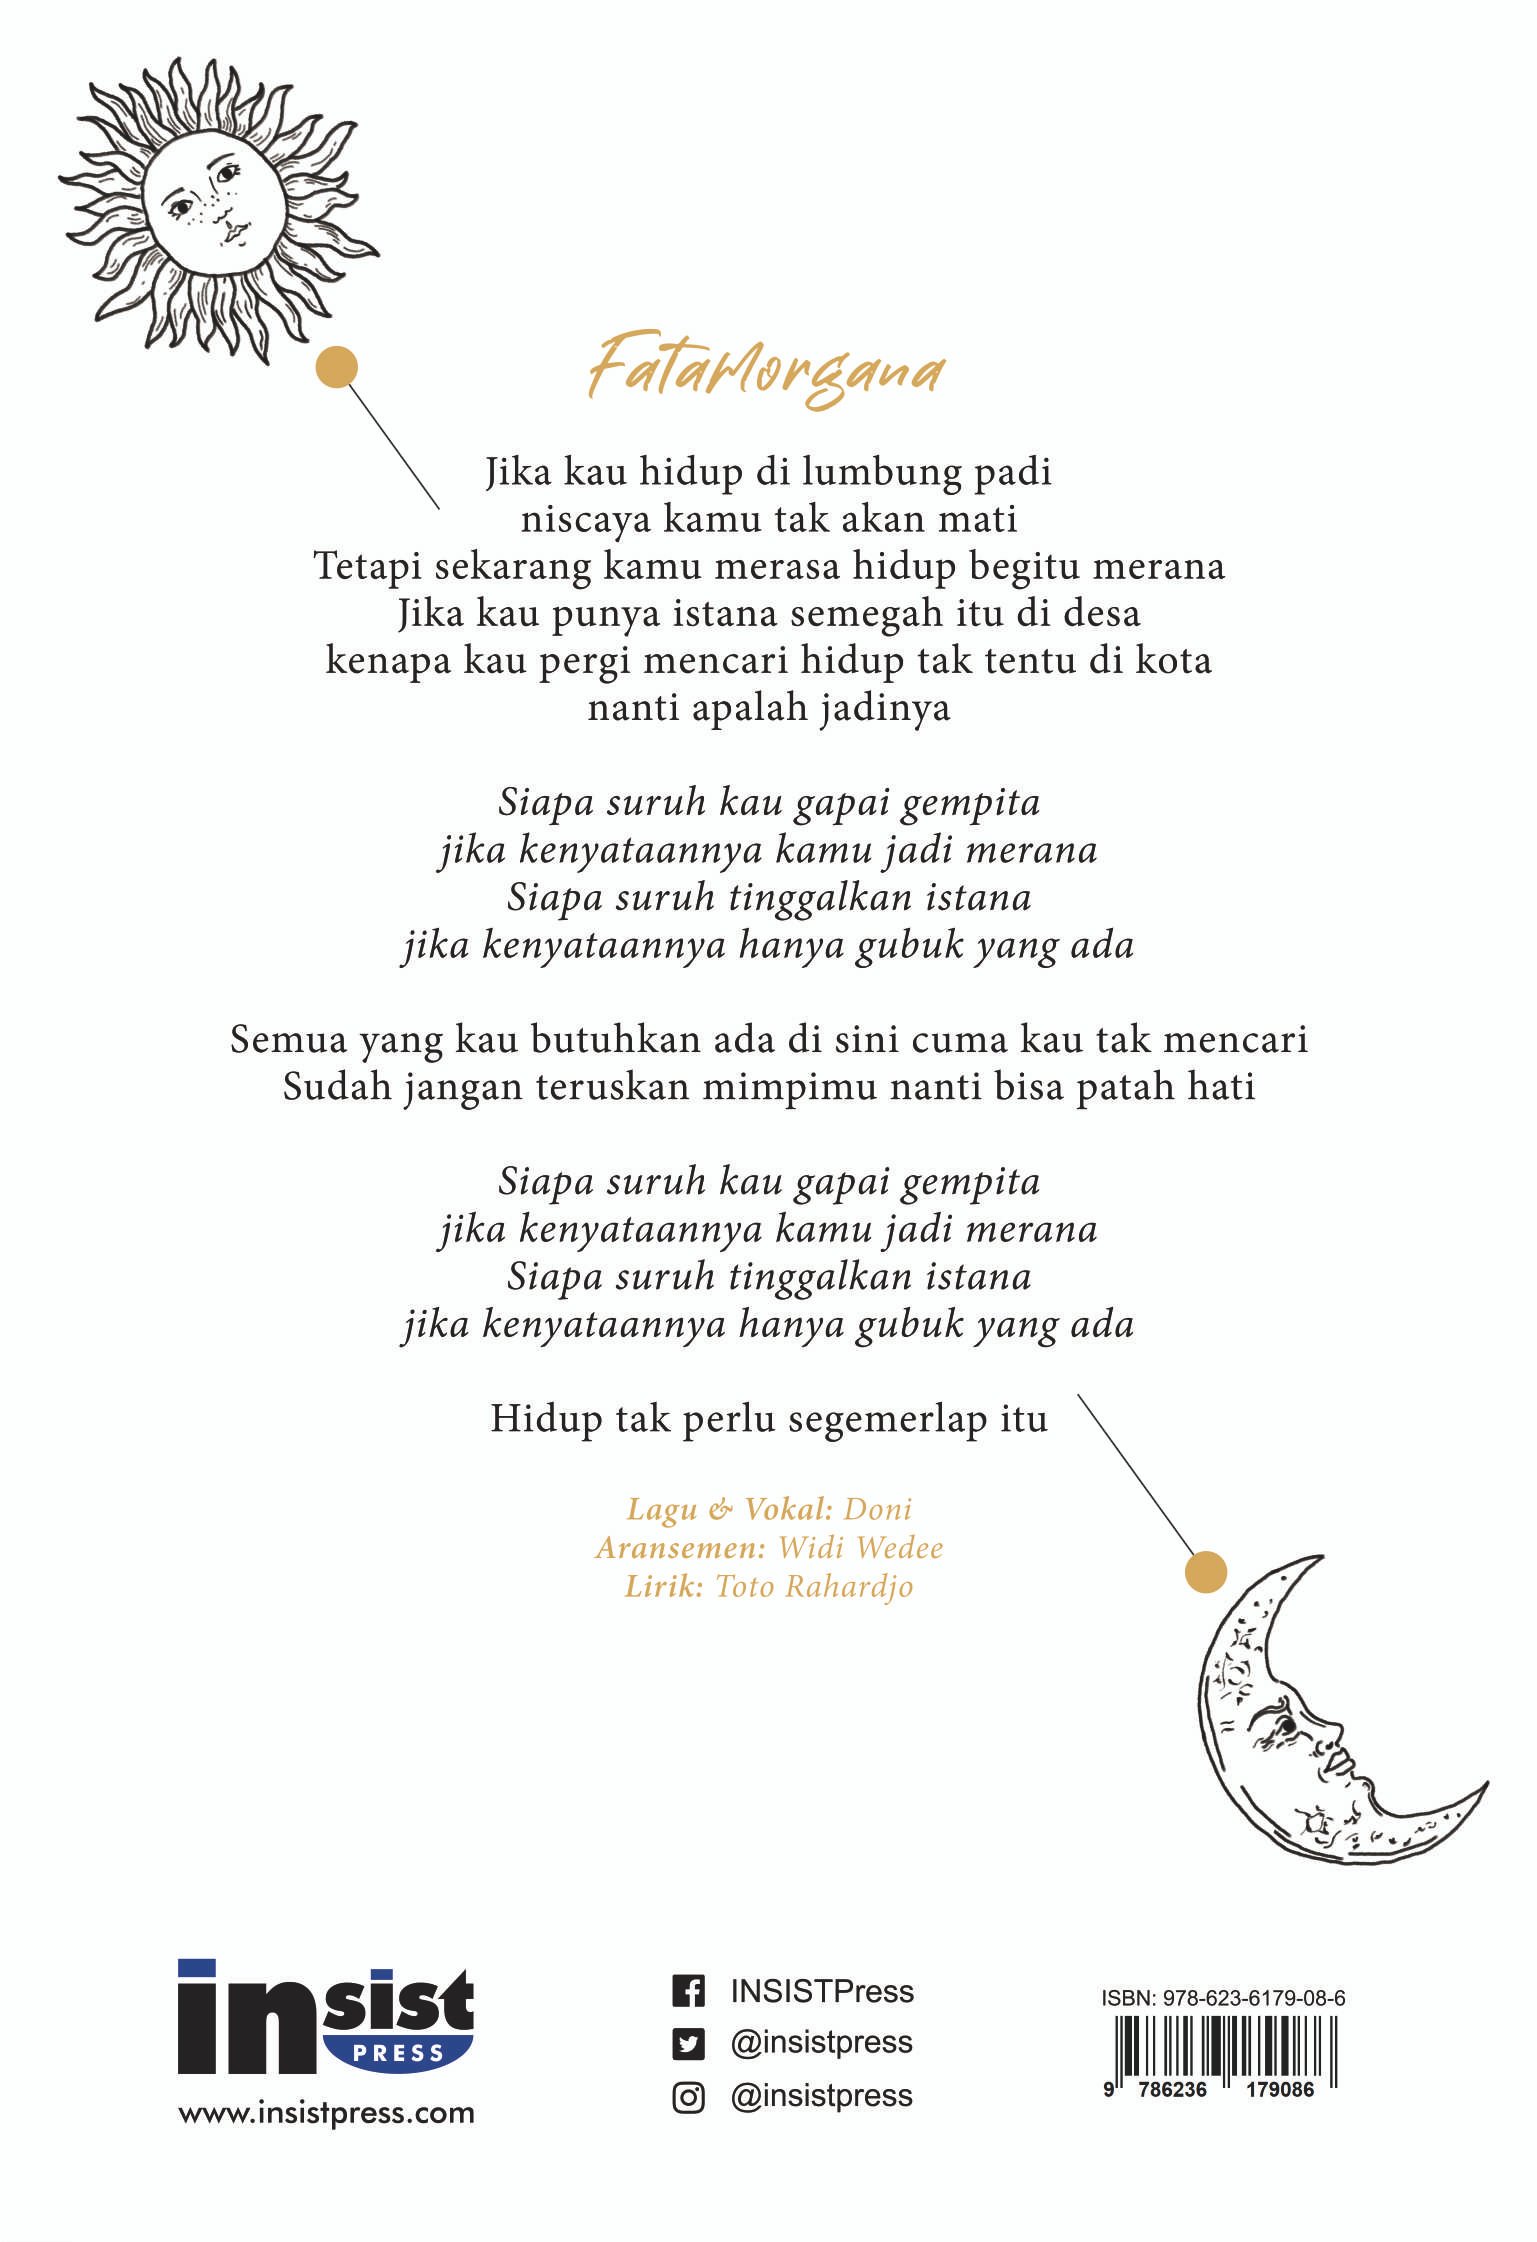 FataMorgana
Jika kau hidup di lumbung padi
niscaya kamu tak akan mati
Tetapi sekarang kamu merasa hidup begitu merana
Jika kau punya istana semegah itu di desa
kenapa kau pergi mencari hidup tak tentu di kota
nanti apalah jadinya
Siapa suruh kau gapai gempita
jika kenyataannya kamu jadi merana
Siapa suruh tinggalkan istana
jika kenyataannya hanya gubuk yang ada
Semua yang kau butuhkan ada di sini cuma kau tak mencari
Sudah jangan teruskan mimpimu nanti bisa patah hati
Siapa suruh kau gapai gempita
jika kenyataannya kamu jadi merana
Siapa suruh tinggalkan istana
jika kenyataannya hanya gubuk yang ada
Hidup tak perlu segemerlap itu
Lagu & Vokal: Doni
Aransemen: Widi Wedee
Lirik: Toto Rahardjo
insist
PRESS
www.insistpress.com
INSISTPress
@insistpress
@insistpress
ISBN: 978-623-6179-08-6
9 786236 179086